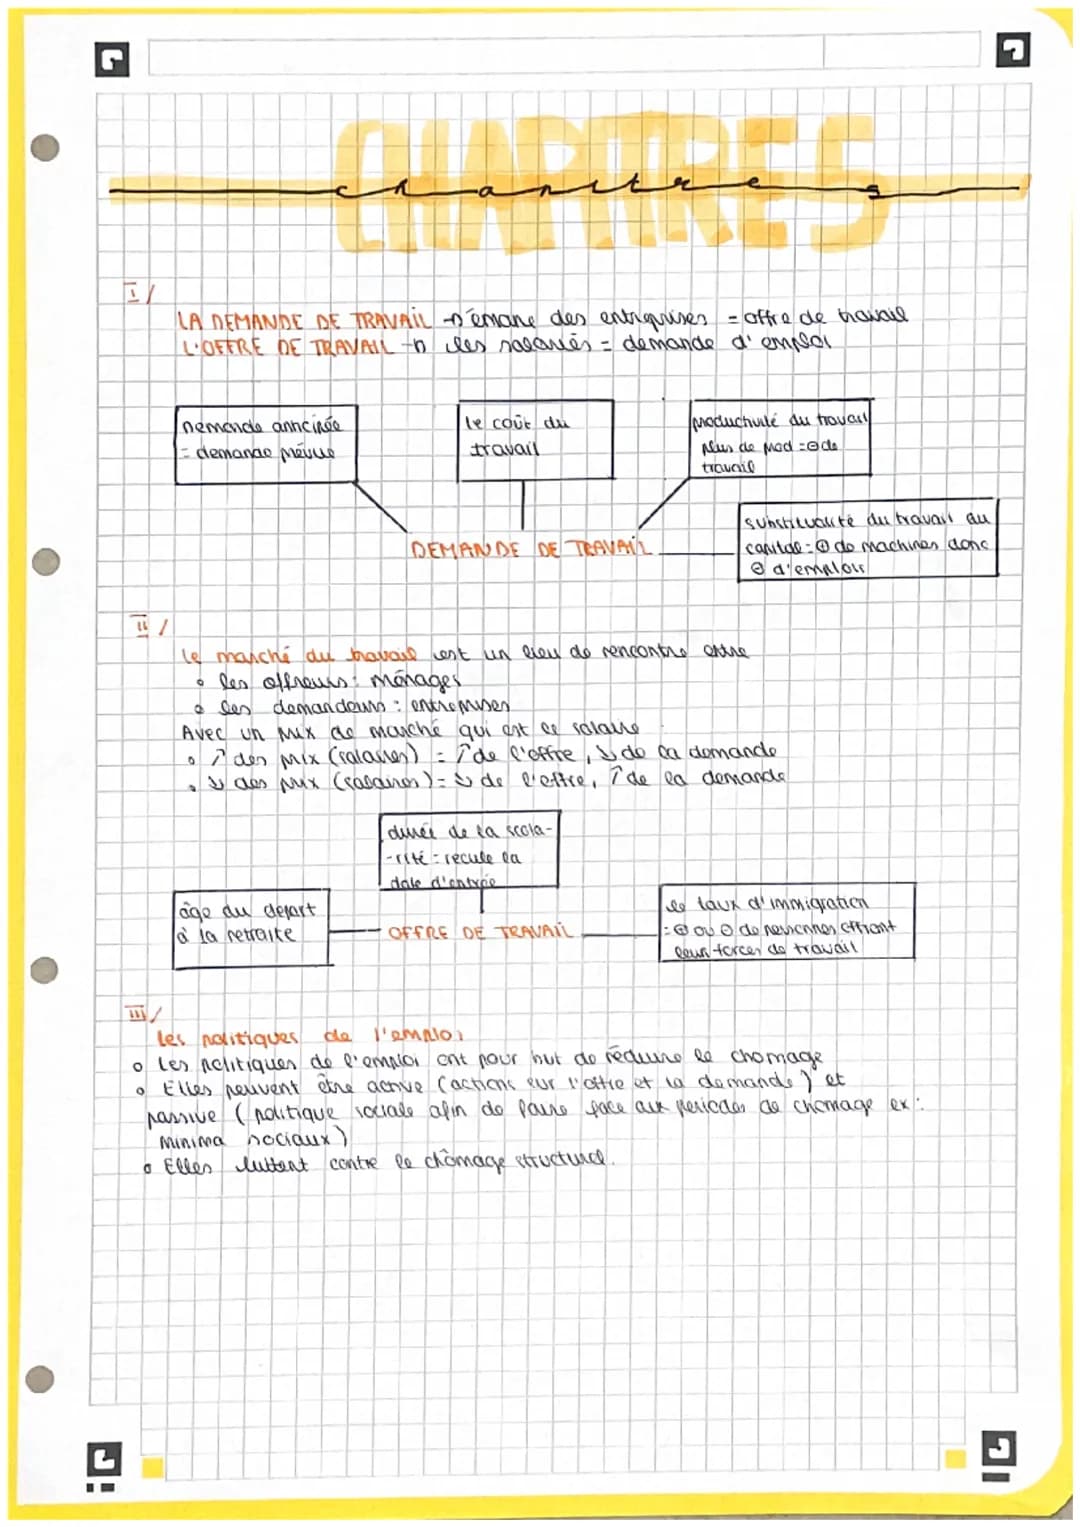 CHAPITRE 5
chapitre 5
I/
LA DEMANDE DE TRAVAIL → émane des entreprises = offre de travail
L'OFFRE DE TRAVAIL → les salariés = demande d'emploi
Demande anticipée
= demande prévue
le coût du
travail
productivité du travail
plus de prod = ⊖ de
travail
DEMANDE DE TRAVAIL
substituabilité du travail au
capital = ⊕ de machines donc
⊖ d'emplois
II/
Le marché du travail est un lieu de rencontre entre
• les offreurs : ménages
• les demandeurs : entreprises
Avec un prix de marché qui est le salaire
• ↗ des prix (salaires) = ↑ de l'offre, ↘ de la demande
• ↘ des prix (salaires) = ↘ de l'offre, ↑ de la demande
durée de la scola-
-rité = recule la
date d'entrée
âge du départ
à la retraite
OFFRE DE TRAVAIL
le taux d'immigration
= ⊕ ou ⊖ de personnes offrant
leur forces de travail
III/
Les politiques de l'emploi
• Les politiques de l'emploi ont pour but de réduire le chomage
• Elles peuvent être active (actions sur l'offre et la demande) et
passive (politique sociale afin de faire face aux periodes de chomage ex :
minima sociaux)
• Elles luttent contre le chômage structurel.